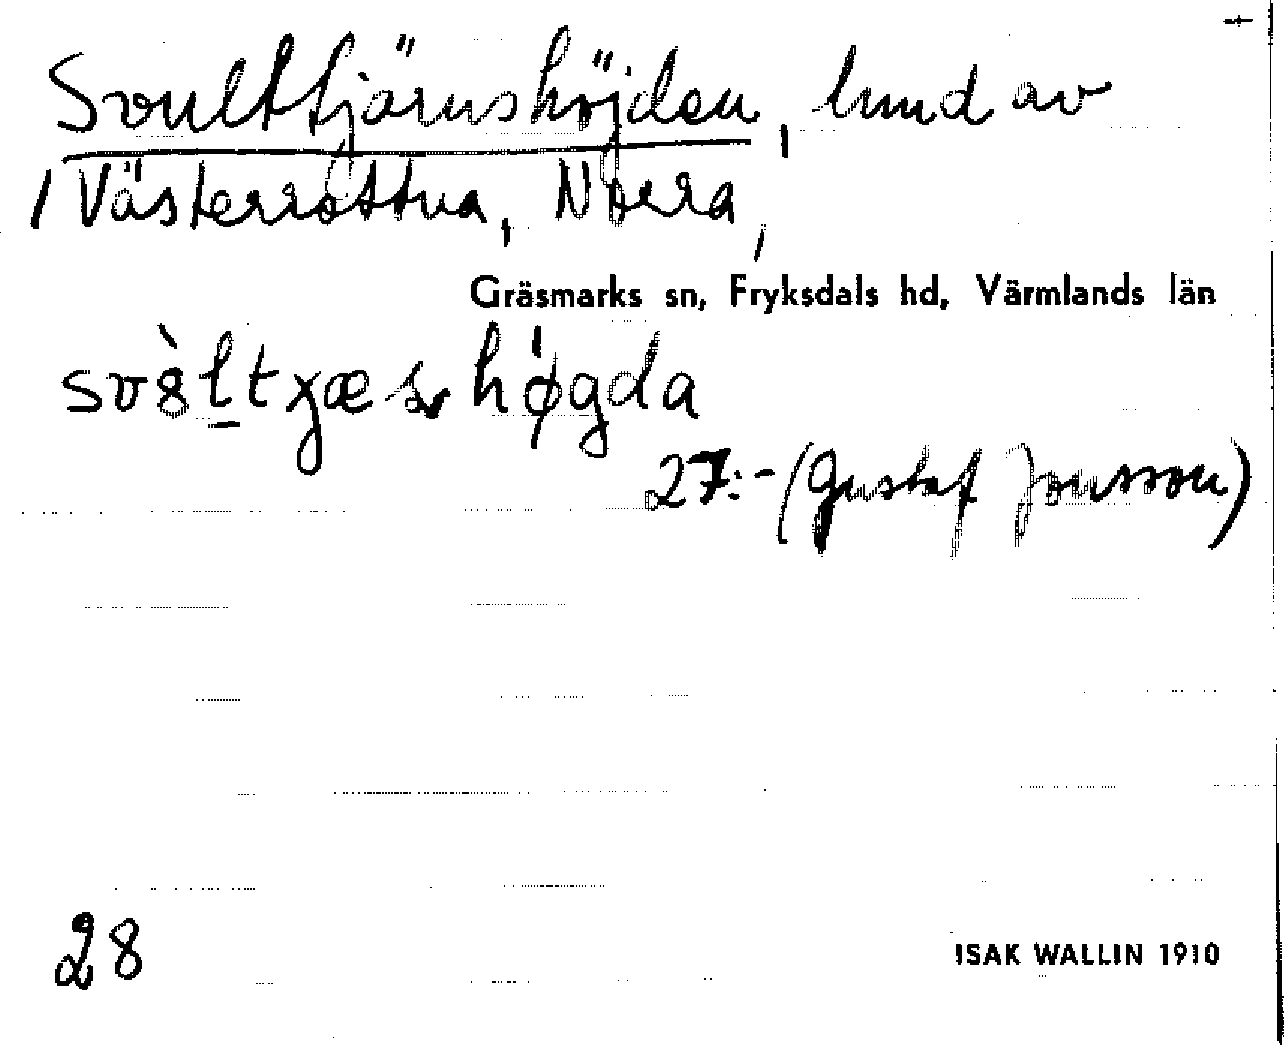 Svulttjärnshöjden, lund av
/ Västerrottna, Norra,
Gräsmarks sn, Fryksdals hd, Värmlands län
høgda
27:- (Gustaf Jonsson)
28
ISAK WALLIN 1910